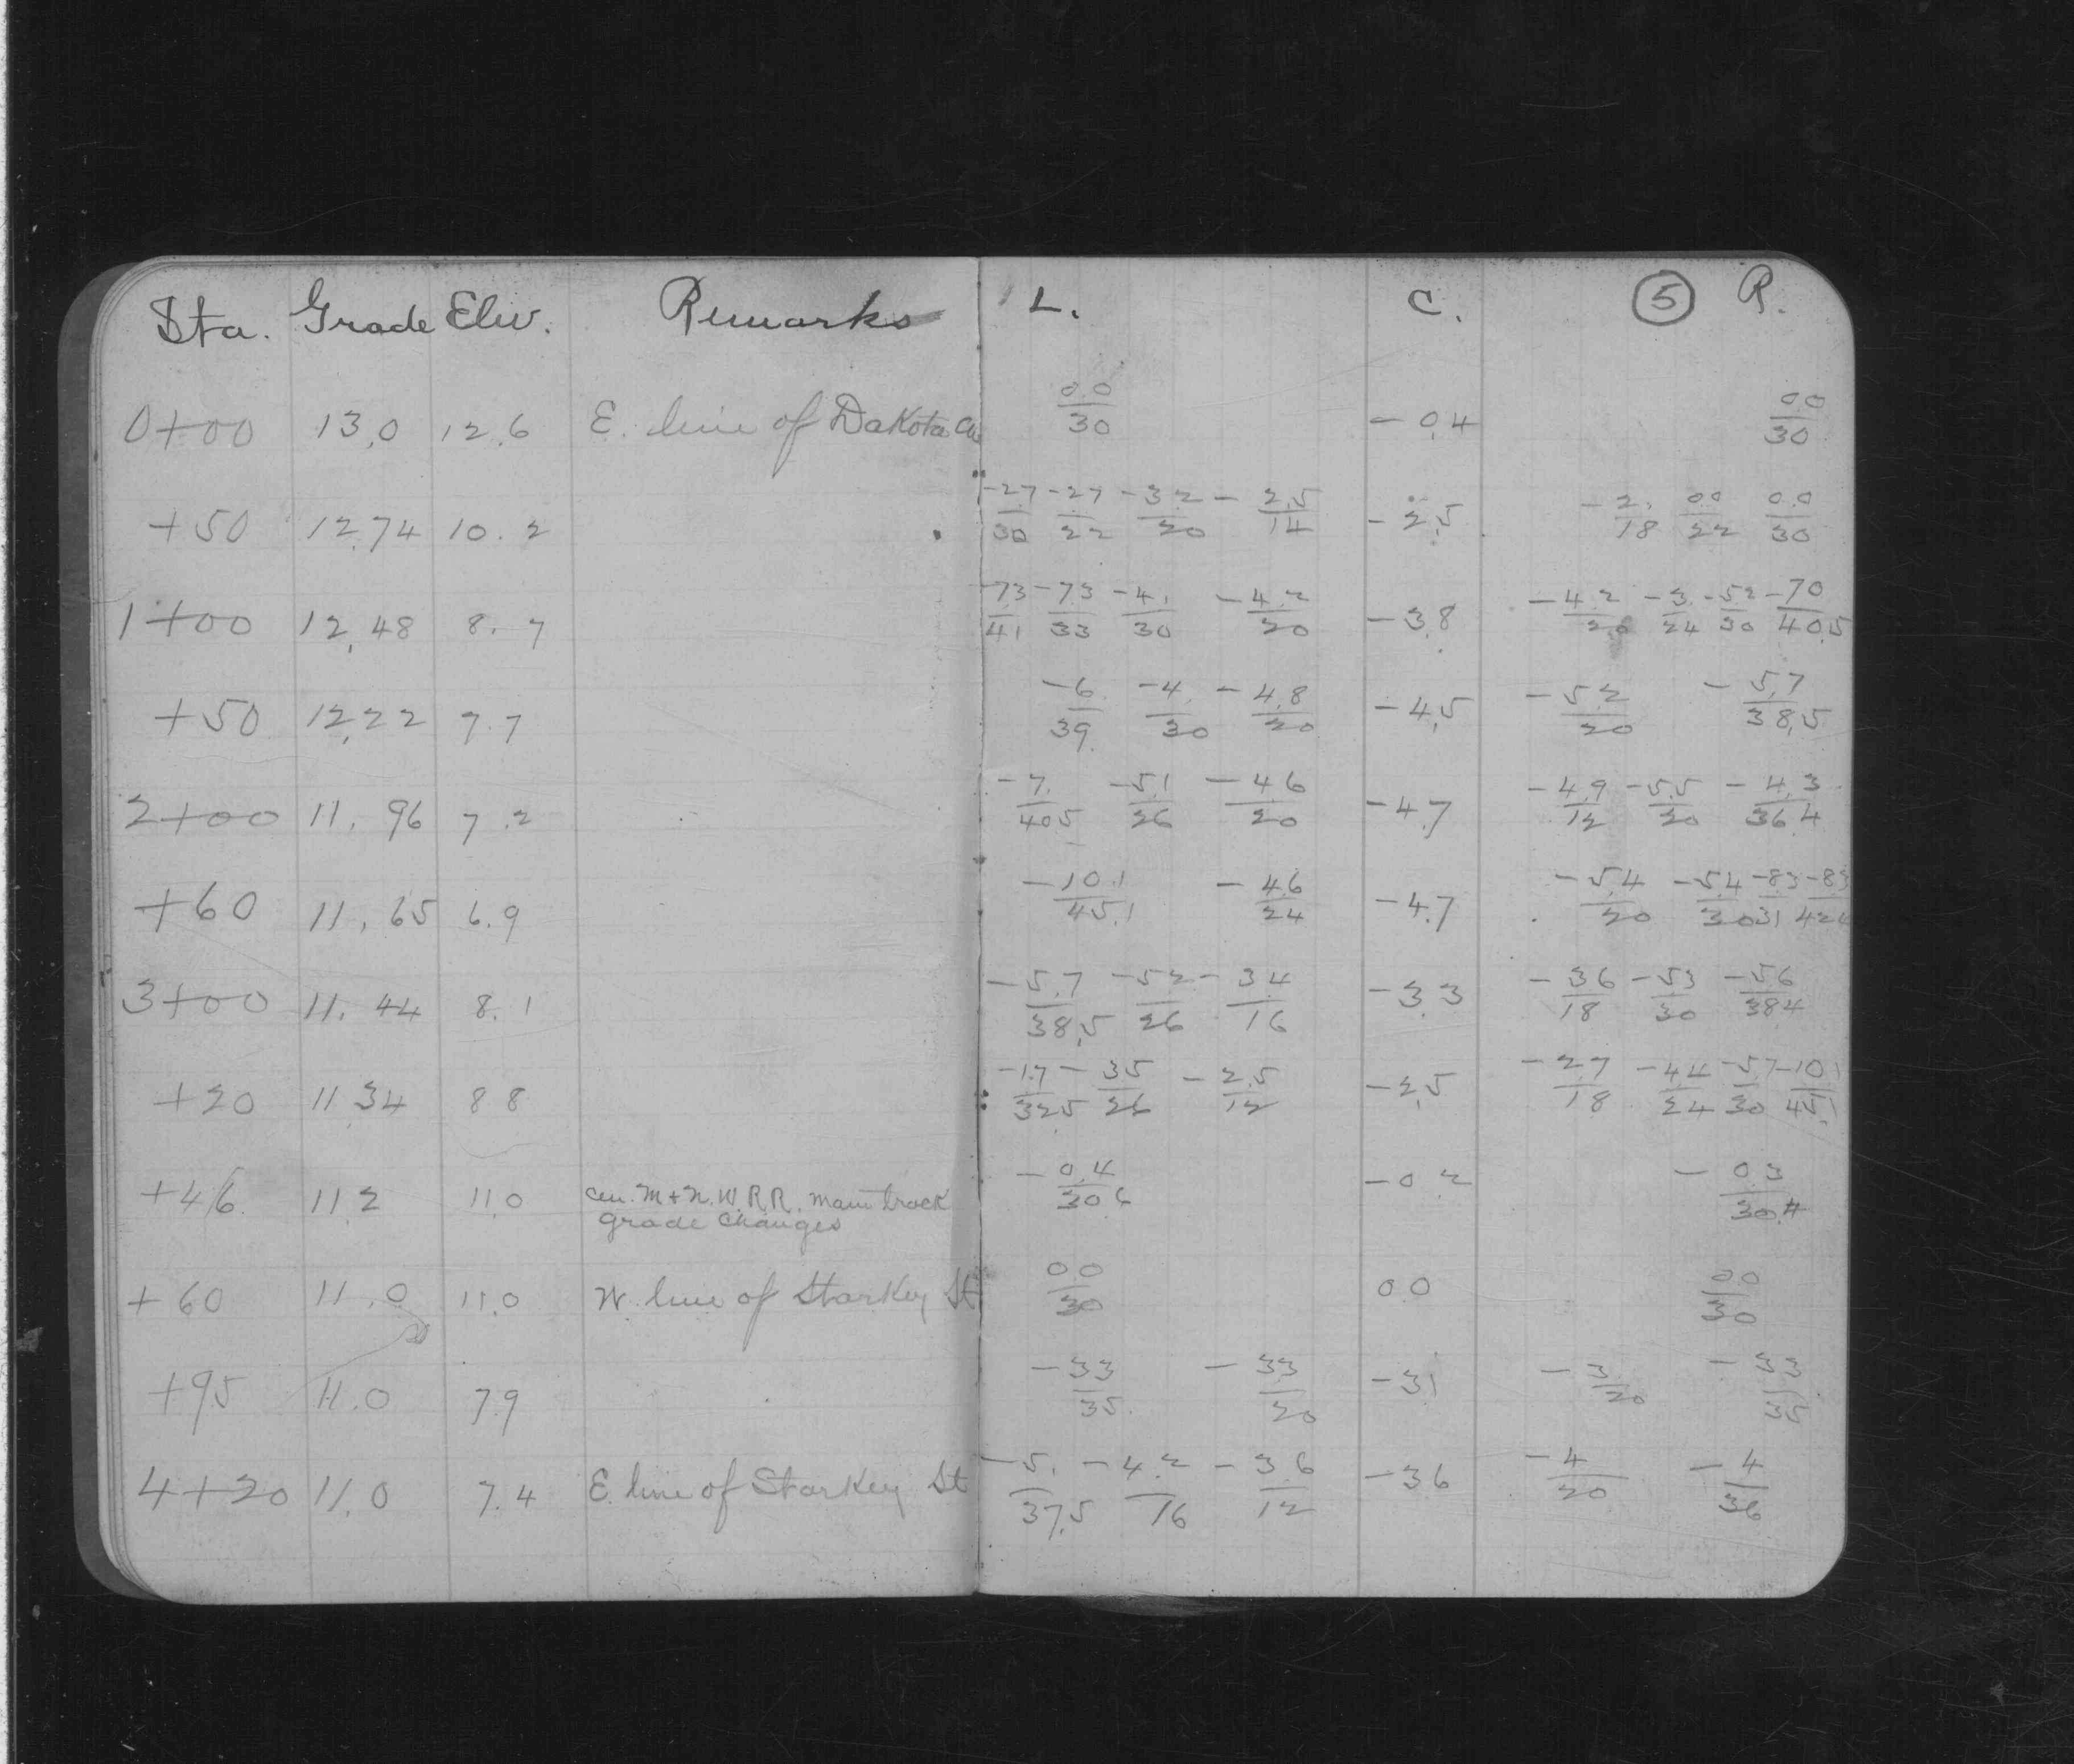 Sta. Grade Elev. Remarks L. C. (5) R.
0+00 13.0 12.6 E. line of Dakota Av 0.0/30 -0.4 0.0/30
+50 12.74 10.2 -2.7/30 -2.7/22 -3.2/20 -2.5/14 -2.5 -2./18 0.0/22 0.0/30
1+00 12.48 8.7 -7.3/41 -7.3/33 -4.1/30 -4.2/20 -3.8 -4.2/20 -3./24 -5.2/30 -7.0/40.5
+50 12.22 7.7 -6/39 -4./30 -4.8/20 -4.5 -5.2/20 -5.7/38.5
2+00 11.96 7.2 -7./40.5 -5.1/26 -4.6/20 -4.7 -4.9/12 -5.5/20 -4.3/36.4
+60 11.65 6.9 -10.1/45.1 -4.6/24 -4.7 -5.4/20 -5.4/30 -8.3/31 -8.3/42.4
3+00 11.44 8.1 -5.7/38.5 -5.2/26 -3.4/16 -3.3 -3.6/18 -5.3/30 -5.6/38.4
+20 11.34 8.8 -1.7/32.5 -3.5/26 -2.5/12 -2.5 -2.7/18 -4.4/24 -5.7/30 -10.1/45.1
+46 11.2 11.0 cen. M + N. W. R.R. main track -0.4/30.6 -0.2 -0.3/30.4
grade changes
+60 11.0 11.0 W. line of Starkey St 0.0/30 0.0 0.0/30
+95 11.0 7.9 -3.3/35. -3.3/20 -3.1 -3/20 -3.3/35
4+20 11.0 7.4 E. line of Starkey St -5./37.5 -4.2/16 -3.6/12 -3.6 -4/20 -4/36